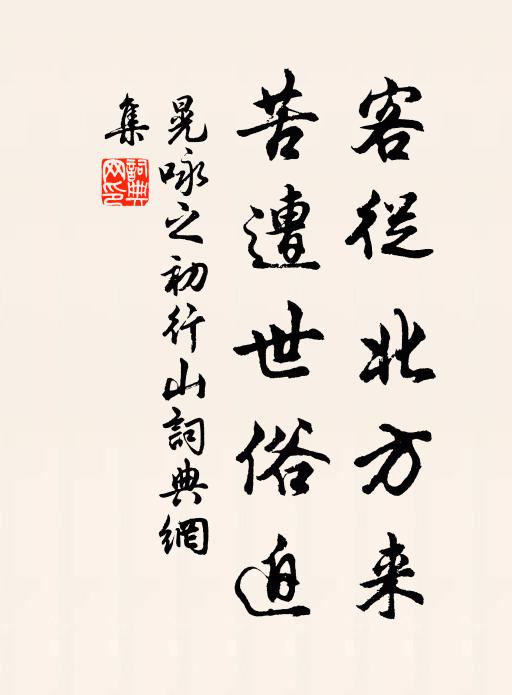 客從北方来
苦遭世俗迫
晁咏之初行山詞典網
集
詞典網印